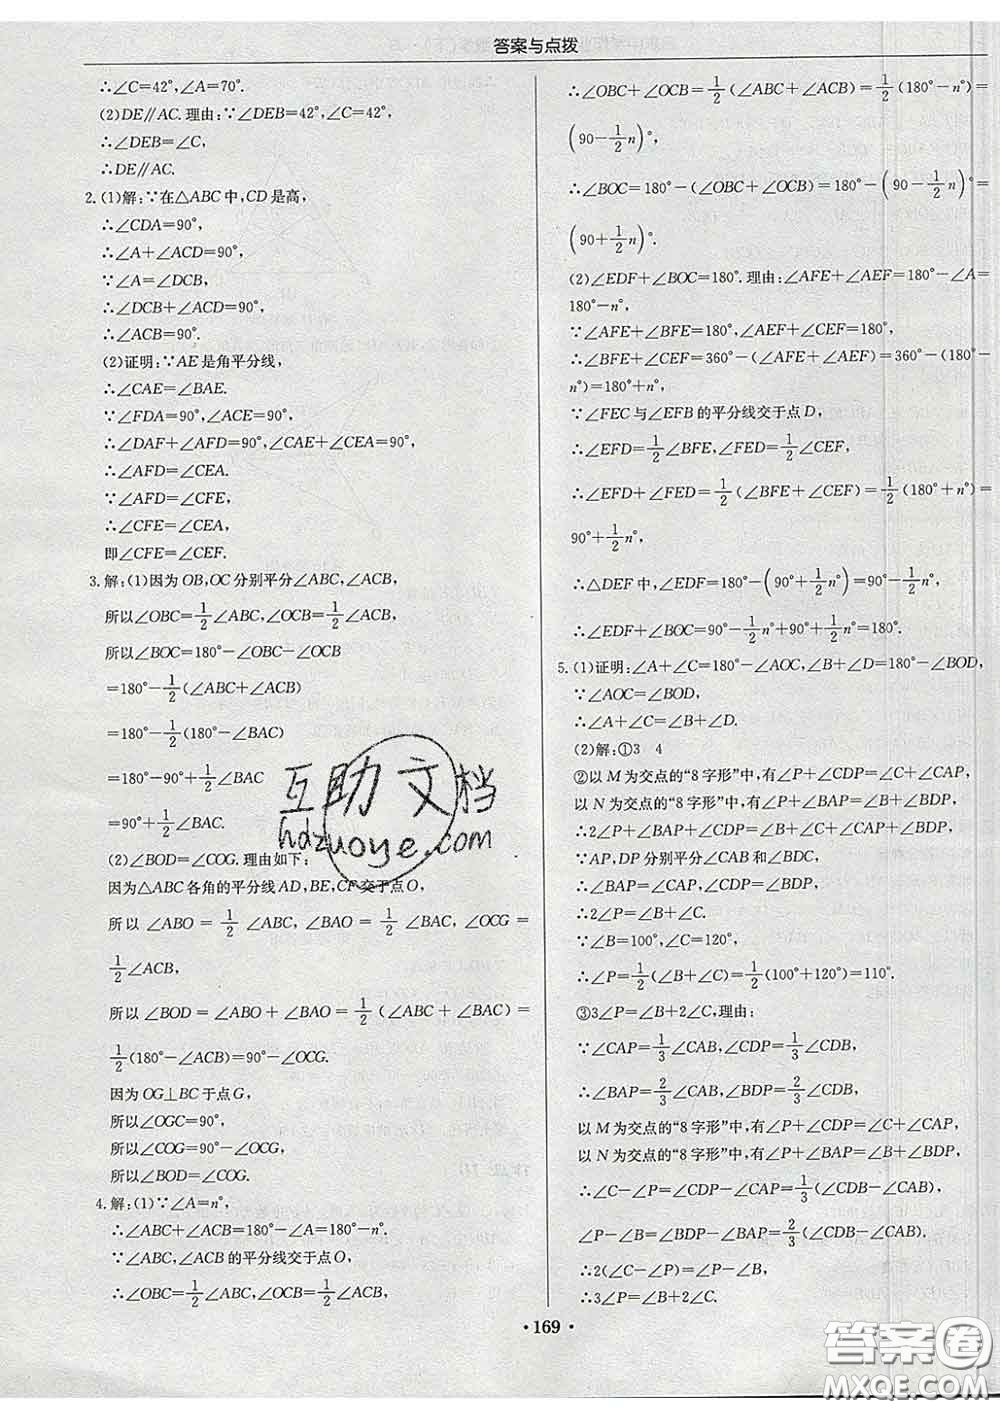 答案与点拨
∴∠C=42°,∠A=70°.
(2)DE∥AC.理由:∵∠DEB=42°,∠C=42°,
∴∠DEB=∠C,
∴DE∥AC.
2.(1)解:∵在△ABC中,CD是高,
∴∠CDA=90°,
∴∠A+∠ACD=90°,
∵∠A=∠DCB,
∴∠DCB+∠ACD=90°,
∴∠ACB=90°.
(2)证明:∵AE是角平分线,
∴∠CAE=∠BAE.
∵∠FDA=90°,∠ACE=90°,
∴∠DAF+∠AFD=90°,∠CAE+∠CEA=90°,
∴∠AFD=∠CEA.
∵∠AFD=∠CFE,
∴∠CFE=∠CEA,
即∠CFE=∠CEF.
3.解:(1)因为OB,OC分别平分∠ABC,∠ACB,
所以∠OBC=1/2∠ABC,∠OCB=1/2∠ACB,
所以∠BOC=180°-∠OBC-∠OCB
=180°-1/2(∠ABC+∠ACB)
=180°-1/2(180°-∠BAC)
=180°-90°+1/2∠BAC
=90°+1/2∠BAC.
(2)∠BOD=∠COG.理由如下:
因为△ABC各角的平分线AD,BE,CF交于点O,
所以∠ABO=1/2∠ABC,∠BAO=1/2∠BAC,∠OCG=
1/2∠ACB,
所以∠BOD=∠ABO+∠BAO=1/2(∠ABC+∠BAC)=
1/2(180°-∠ACB)=90°-∠OCG.
因为OG⊥BC于点G,
所以∠OGC=90°,
所以∠COG=90°-∠OCG,
所以∠BOD=∠COG.
4.解:(1)∵∠A=n°,
∴∠ABC+∠ACB=180°-∠A=180°-n°.
∵∠ABC,∠ACB的平分线交于点O,
∴∠OBC=1/2∠ABC,∠OCB=1/2∠ACB,
∴∠OBC+∠OCB=1/2(∠ABC+∠ACB)=1/2(180°-n°)=
(90-1/2n)°,
∴∠BOC=180°-(∠OBC+∠OCB)=180°-(90-1/2n)°=
(90+1/2n)°.
(2)∠EDF+∠BOC=180°.理由:∠AFE+∠AEF=180°-∠A=
180°-n°,
∵∠AFE+∠BFE=180°,∠AEF+∠CEF=180°,
∴∠BFE+∠CEF=360°-(∠AFE+∠AEF)=360°-(180°-
n°)=180°+n°.
∵∠FEC与∠EFB的平分线交于点D,
∴∠EFD=1/2∠BFE,∠FED=1/2∠CEF,
∴∠EFD+∠FED=1/2(∠BFE+∠CEF)=1/2(180°+n°)=
90°+1/2n°,
∴△DEF中,∠EDF=180°-(90°+1/2n°)=90°-1/2n°,
∴∠EDF+∠BOC=90°-1/2n°+90°+1/2n°=180°.
5.(1)证明:∠A+∠C=180°-∠AOC,∠B+∠D=180°-∠BOD,
∵∠AOC=∠BOD,
∴∠A+∠C=∠B+∠D.
(2)解:①3 4
②以M为交点的“8字形”中,有∠P+∠CDP=∠C+∠CAP,
以N为交点的“8字形”中,有∠P+∠BAP=∠B+∠BDP,
∴2∠P+∠BAP+∠CDP=∠B+∠C+∠CAP+∠BDP.
∵AP,DP分别平分∠CAB和∠BDC,
∴∠BAP=∠CAP,∠CDP=∠BDP,
∴2∠P=∠B+∠C.
∵∠B=100°,∠C=120°,
∴∠P=1/2(∠B+∠C)=1/2(100°+120°)=110°.
③3∠P=∠B+2∠C,理由:
∵∠CAP=1/3∠CAB,∠CDP=1/3∠CDB,
∴∠BAP=2/3∠CAB,∠BDP=2/3∠CDB,
以M为交点的“8字形”中,有∠P+∠CDP=∠C+∠CAP,
以N为交点的“8字形”中,有∠P+∠BAP=∠B+∠BDP,
∴∠C-∠P=∠CDP-∠CAP=1/3(∠CDB-∠CAB),
∠P-∠B=∠BDP-∠BAP=2/3(∠CDB-∠CAB).
∴2(∠C-∠P)=∠P-∠B,
∴3∠P=∠B+2∠C.
互助文档
hdzuoye.com
• 169 •
答案圈
MXQE.COM